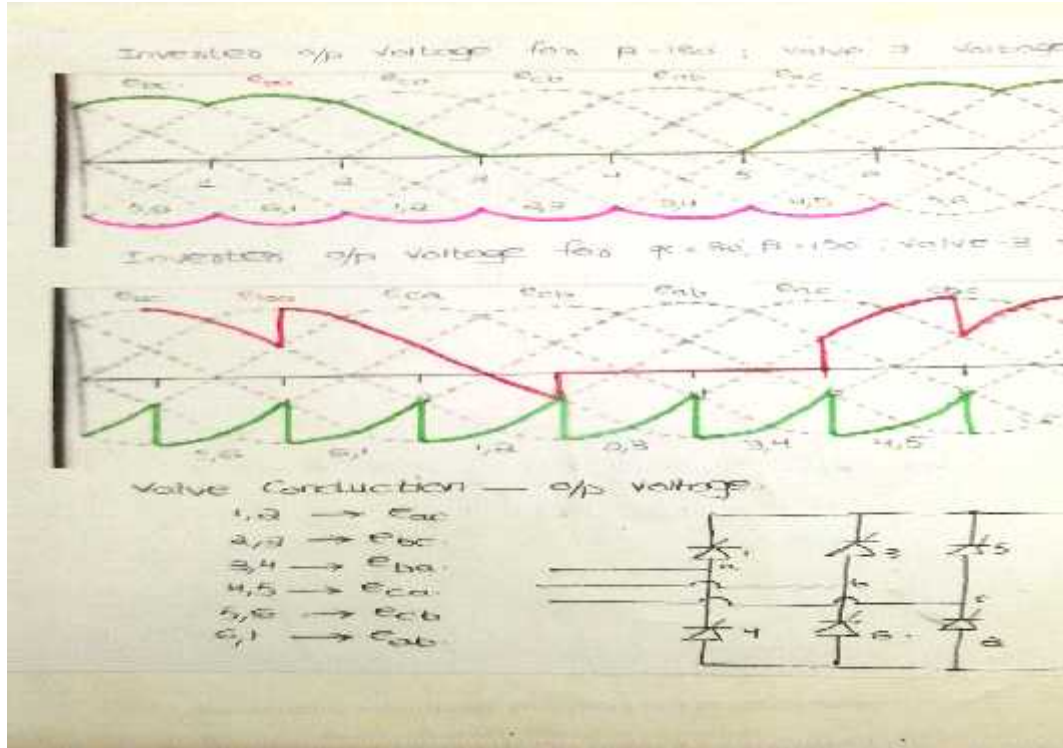 Inverter o/p voltage for β=180; valve 3 voltage
ebc eba eca ecb eab eac
1 2 3 4 5 6
5,6 6,1 1,2 2,3 3,4 4,5 5,6
Inverter o/p voltage for β=150; valve-3
ebc eba eca ecb eab eac ebc
5,6 6,1 1,2 2,3 3,4 4,5
Valve Conduction — o/p voltage.
1,2 → eac
2,3 → ebc
3,4 → eba
4,5 → eca
5,6 → ecb
6,1 → eab
1 3 5
a
b
c
4 6 2